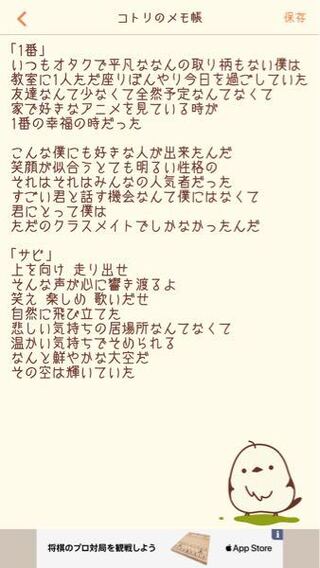 コトリのメモ帳
保存
「1番」
いつもオタクで平凡ななんの取り柄もない僕は
教室に1人ただ座りぼんやり今日を過ごしていた
友達なんて少なくて全然予定なんてなくて
家で好きなアニメを見ている時が
1番の幸福の時だった
こんな僕にも好きな人が出来たんだ
笑顔が似合うとても明るい性格の
それはそれはみんなの人気者だった
すごい君と話す機会なんて僕にはなくて
君にとって僕は
ただのクラスメイトでしかなかったんだ
「サビ」
上を向け 走り出せ
そんな声が心に響き渡るよ
笑え 楽しめ 歌いだせ
自然に飛び立てた
悲しい気持ちの居場所なんてなくて
温かい気持ちでそめられる
なんと鮮やかな大空だ
その空は輝いていた
将棋のプロ対局を観戦しよう
App Store